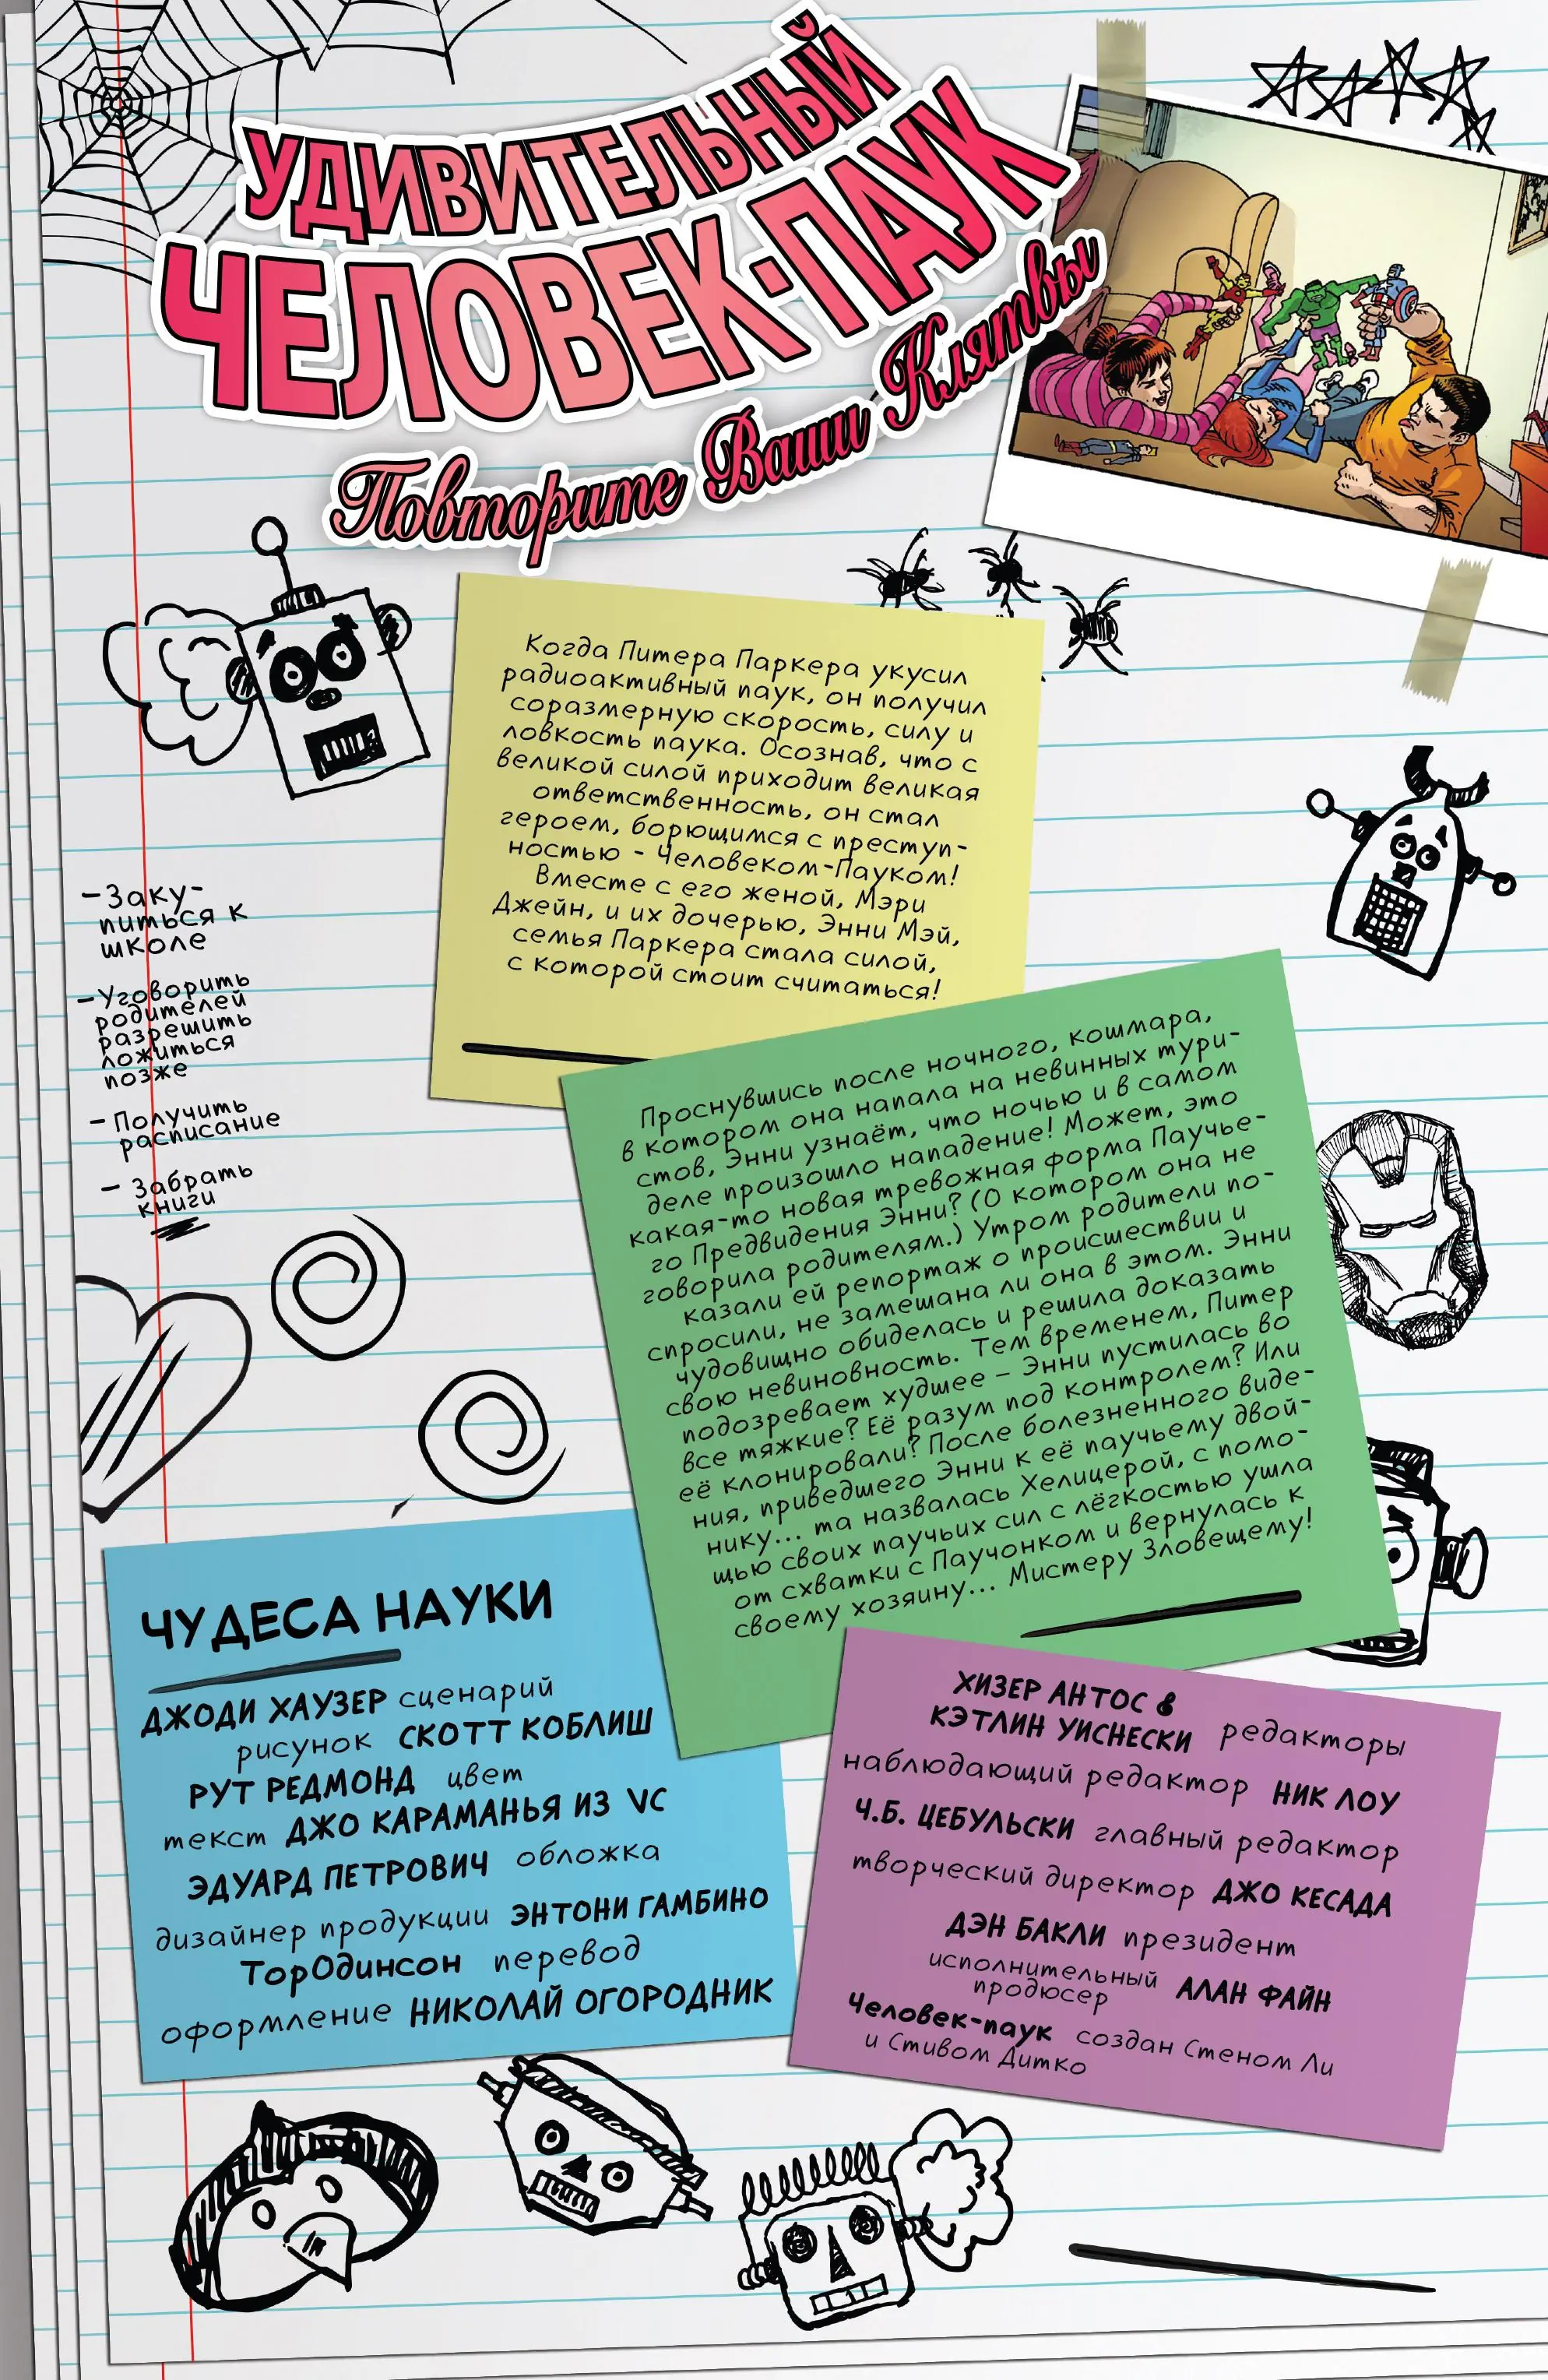 УДИВИТЕЛЬНЫЙ
ЧЕЛОВЕК-ПАУК
Повторите Ваши Клятвы
Когда Питера Паркера укусил
радиоактивный паук, он получил
соразмерную скорость, силу и
ловкость паука. Осознав, что с
великой силой приходит великая
ответственность, он стал
героем, борющимся с преступ-
ностью - Человеком-Пауком!
Вместе с его женой, Мэри
Джейн, и их дочерью, Энни Мэй,
семья Паркера стала силой,
с которой стоит считаться!
- Заку-
питься к
школе
- Уговорить
родителей
разрешить
ложиться
позже
- Получить
расписание
- Забрать
книги
Проснувшись после ночного, кошмара,
в котором она напала на невинных тури-
стов, Энни узнаёт, что ночью и в самом
деле произошло нападение! Может, это
какая-то новая тревожная форма Паучье-
го Предвидения Энни? (О котором она не
говорила родителям.) Утром родители по-
казали ей репортаж о происшествии и
спросили, не замешана ли она в этом. Энни
чудовищно обиделась и решила доказать
свою невиновность. Тем временем, Питер
подозревает худшее – Энни пустилась во
все тяжкие? Её разум под контролем? Или
её клонировали? После болезненного виде-
ния, приведшего Энни к её паучьему двой-
нику... та назвалась Хелицерой, с помо-
щью своих паучьих сил с лёгкостью ушла
от схватки с Паучонком и вернулась к
своему хозяину... Мистеру Зловещему!
ЧУДЕСА НАУКИ
ДЖОДИ ХАУЗЕР сценарий
рисунок СКОТТ КОБЛИШ
РУТ РЕДМОНД цвет
текст ДЖО КАРАМАНЬЯ ИЗ VC
ЭДУАРД ПЕТРОВИЧ обложка
дизайнер продукции ЭНТОНИ ГАМБИНО
ТорОдинсон перевод
оформление НИКОЛАЙ ОГОРОДНИК
ХИЗЕР АНТОС &
КЭТЛИН УИСНЕСКИ редакторы
наблюдающий редактор НИК ЛОУ
Ч.Б. ЦЕБУЛЬСКИ главный редактор
творческий директор ДЖО КЕСАДА
ДЭН БАКЛИ президент
исполнительный
продюсер АЛАН ФАЙН
Человек-паук создан Стеном Ли
и Стивом Дитко